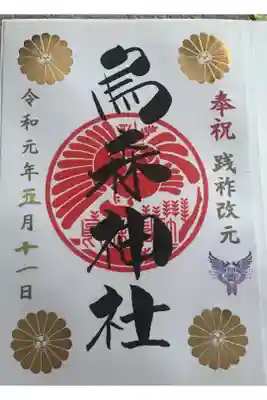 奉祝 践祚改元
烏森神社
令和元年五月十一日